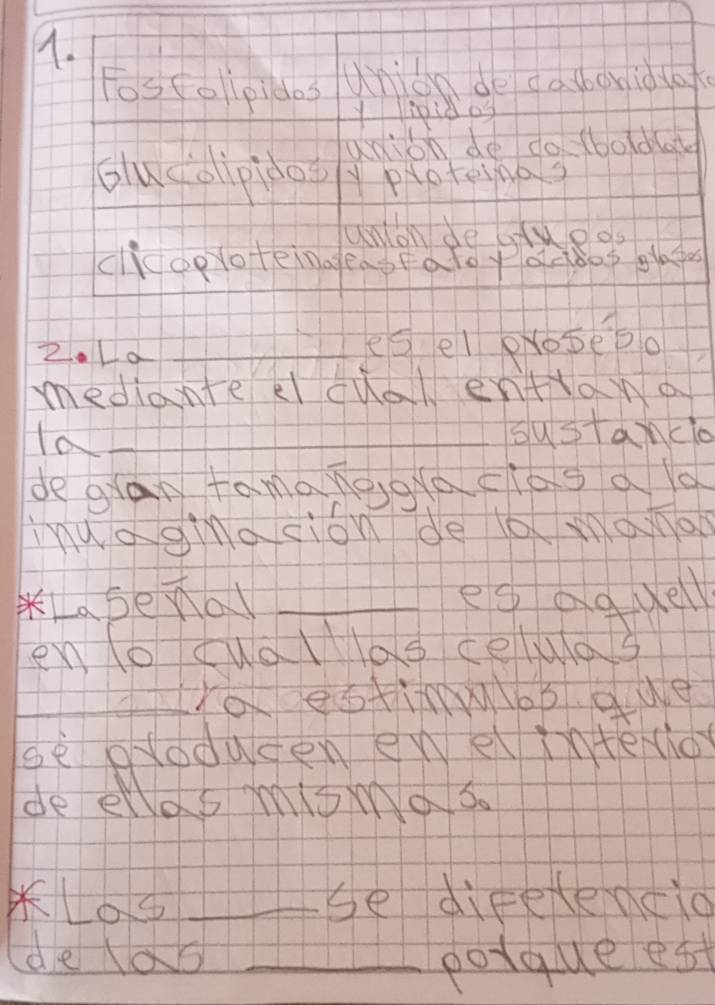 1.
Fosfolipidos unión de carbonidrato
y lipidos
Glucolipidos unión de
y proteinas
unión de grupos
clicoproteinas fato y acidos grasos
2. La ________ es el proseso
mediante el cual entran a
la ________ sustancia
de gran tamañogracias a la
inuaginación de la
*La señal ________ es aquell
en lo cual las celulas
________ a estimulos que
se producen en el interior
de ellas mismas.
*Las ________ se diferencia
de las ________ porque est